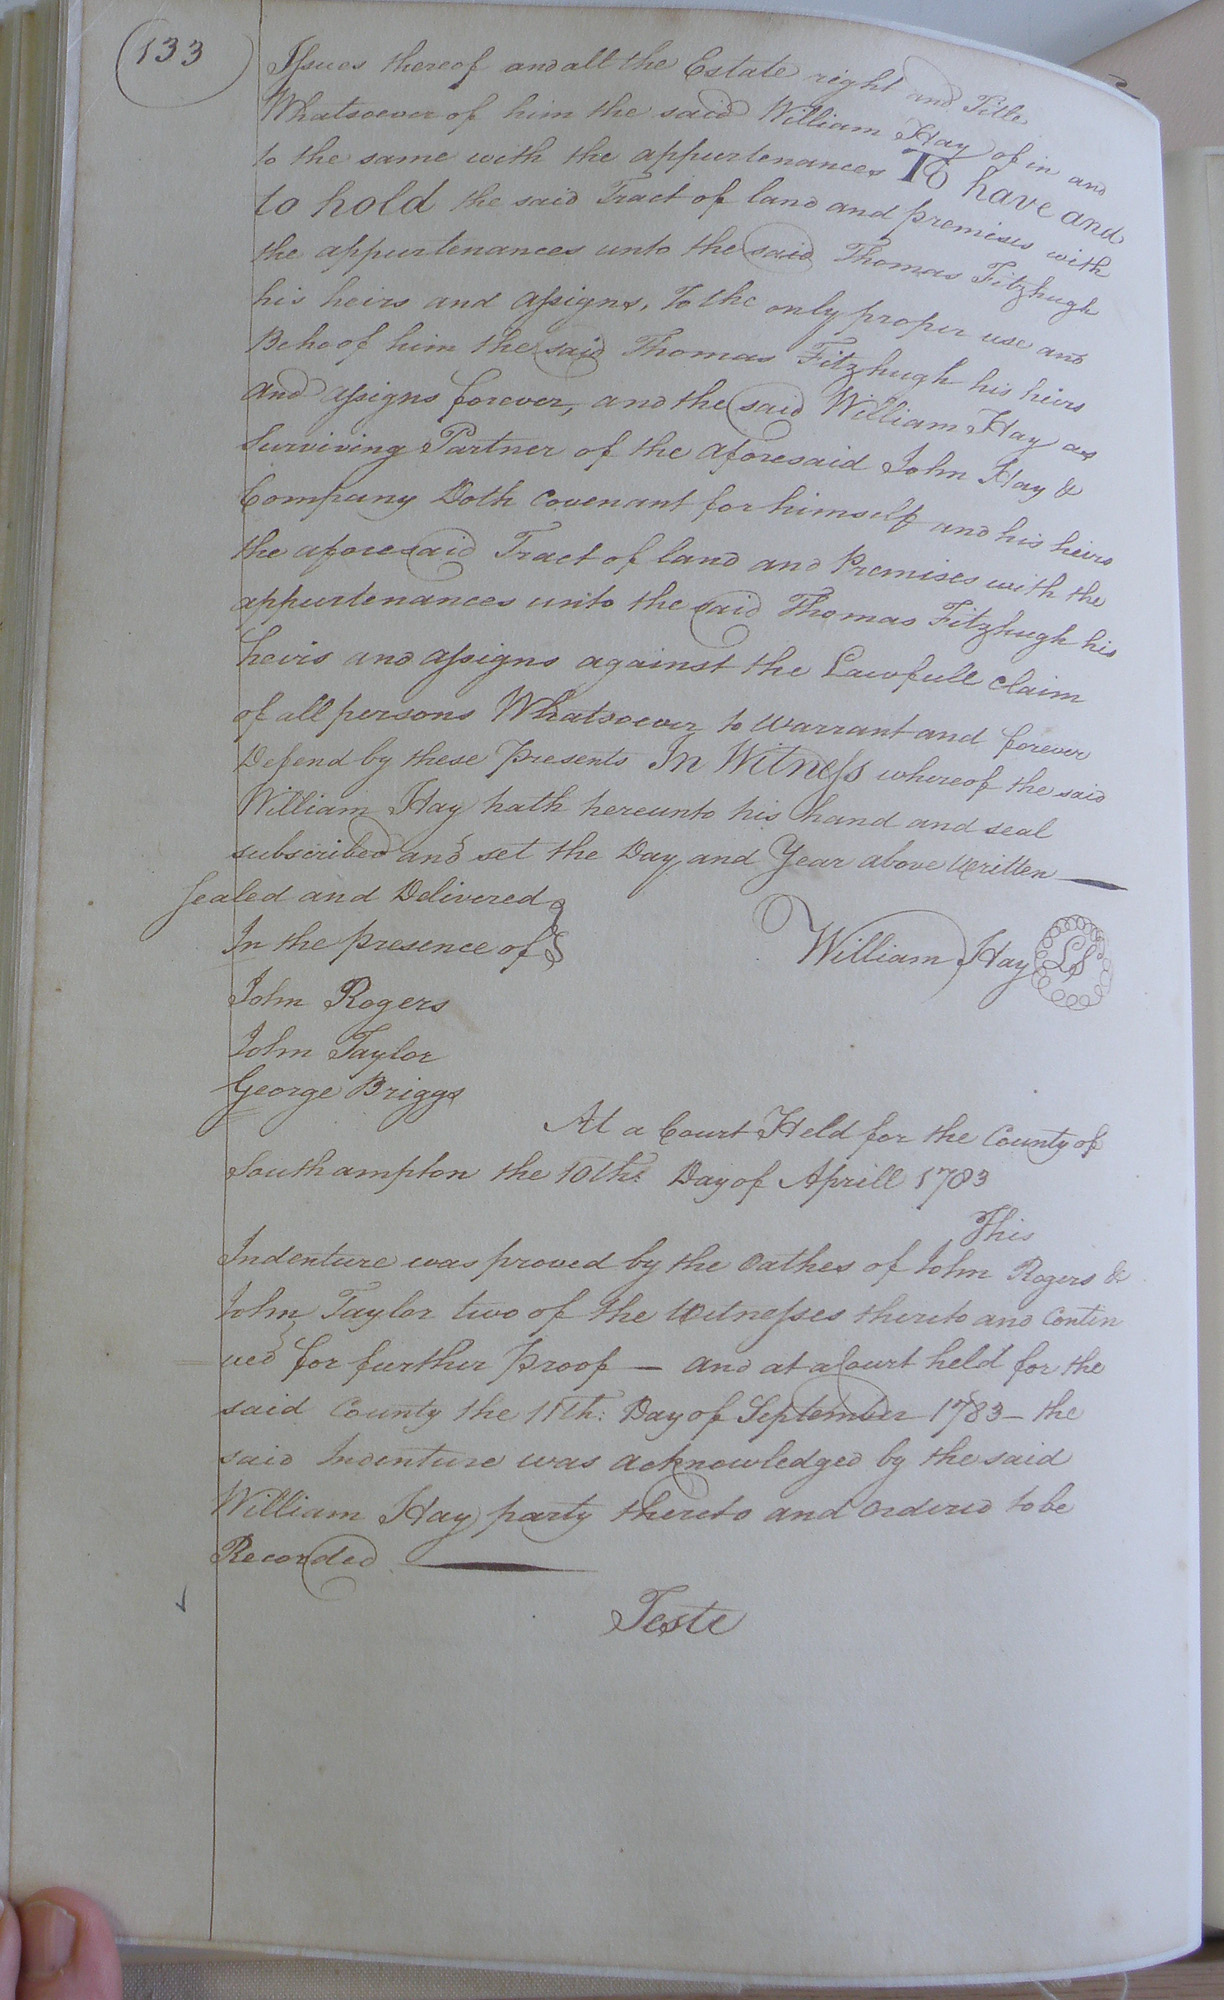 133
Issues thereof and all the Estate right and Title
Whatsoever of him the said William Hay of in and
to the same with the appurtenances To have and
to hold the said Tract of land and premises with
the appurtenances unto the said Thomas Fitzhugh
his heirs and assigns, To the only proper use and
Behoof him the said Thomas Fitzhugh his heirs
and assigns forever, and the said William Hay as
Surviving Partner of the aforesaid John Hay &
Company Doth Covenant for himself and his heirs
the aforesaid Tract of land and Premises with the
appurtenances unto the said Thomas Fitzhugh his
heirs and assigns against the Lawfull claim
of all persons Whatsoever to warrant and forever
Defend by these Presents In Witness whereof the said
William Hay hath hereunto his hand and seal
subscribed and set the Day and Year above Written
Sealed and Delivered
In the presence of
William Hay LS
John Rogers
John Taylor
George Briggs
At a Court Held for the County of
Southampton the 10th: Day of Aprill 1783
This
Indenture was proved by the Oathes of John Rogers &
John Taylor two of the Witnesses thereto and Contin
ued for further Proof — and at a Court held for the
said County the 11th: Day of September 1783 — the
said Indenture was acknowledged by the said
William Hay party thereto and Ordered to be
Recorded
Teste